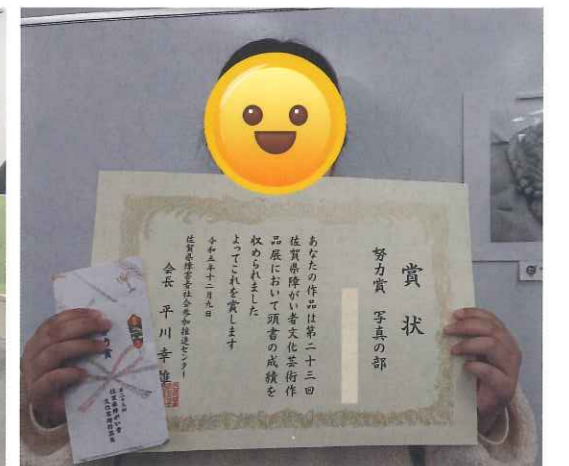 賞状
努力賞 写真の部
あなたの作品は第二十三回
佐賀県障がい者文化芸術作
品展において頭書の成績を
収められました
よってこれを賞します
令和五年十二月九日
佐賀県障害者社会参加推進センター
会長 平川幸雄
の賞
第二十三回
佐賀県障がい者
文化芸術作品展